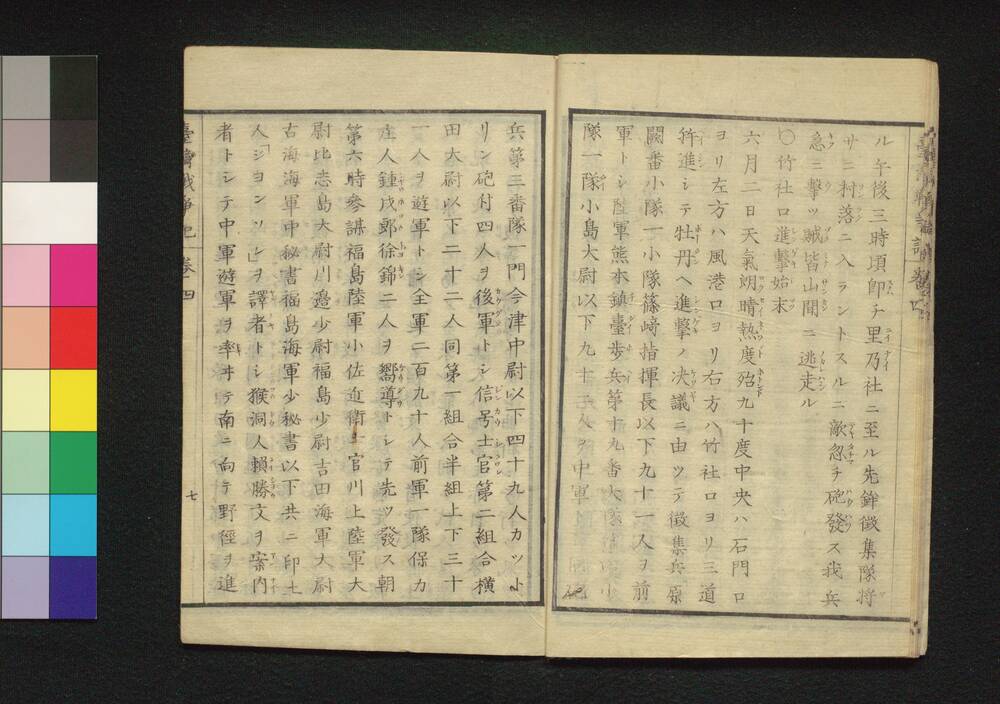 ル午後三時頃即チ里乃社ニ至ル先鉾徴集隊将
サニ村落ニ入ラントスルニ敵忽チ砲發ス我兵
急ニ擊ツ賊皆山間ニ逃走ル
〇竹社口進擊始末
六月二日天氣朗晴熱度殆九十度中央ハ石門口
ヨリ左方ハ風港口ヨリ右方ハ竹社口ヨリ三道
筰進シテ牡丹ヘ進擊ノ决議ニ由ツテ徴集兵原
闕番小隊一小隊篠﨑指揮長以下九十一人ヲ前
軍トシ陸軍熊本鎮臺歩兵第十九番大隊
隊一隊小島大尉以下九十二人ヲ中軍
兵第三番隊一門今津中尉以下四十九人カツト
リン砲付四人ヲ後軍トシ信号士官第二組合橫
田大尉以下二十二人同第一組合半組上下三十
一人ヲ遊軍トシ全軍二百九十人前軍一隊保カ
庄人鍾戌郵徐錦二人ヲ嚮導トシテ先ツ發ス朝
第六時參謀福島陸軍小佐近衛士官川上陸軍大
尉比志島大尉川邉少尉福島少尉吉田海軍大尉
古海海軍中秘書福島海軍少秘書以下共ニ印土
人「ジヨンソン」ヲ譯者トシ猴洞人賴勝文ヲ案内
者トシテ中軍遊軍ヲ率ヰテ南ニ向テ野徑ヲ進
臺灣戰爭記 卷四
七